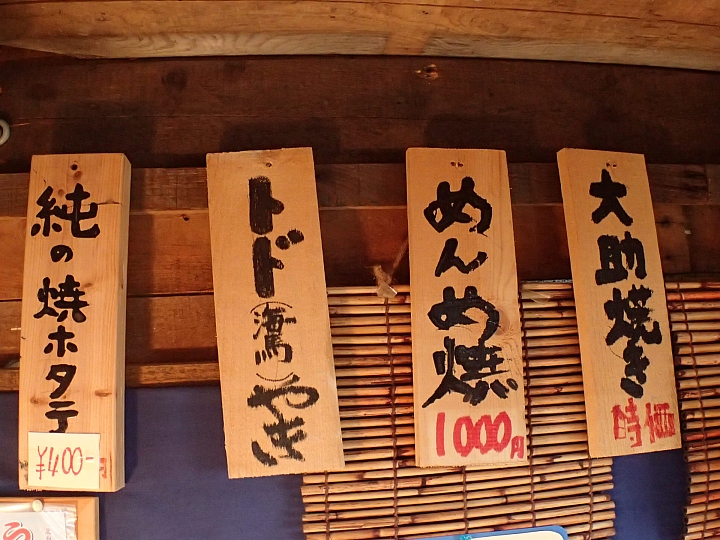 大助焼き
時価
めんめ焼
1000円
トド(海馬)やき
純の焼ホタテ
¥400-